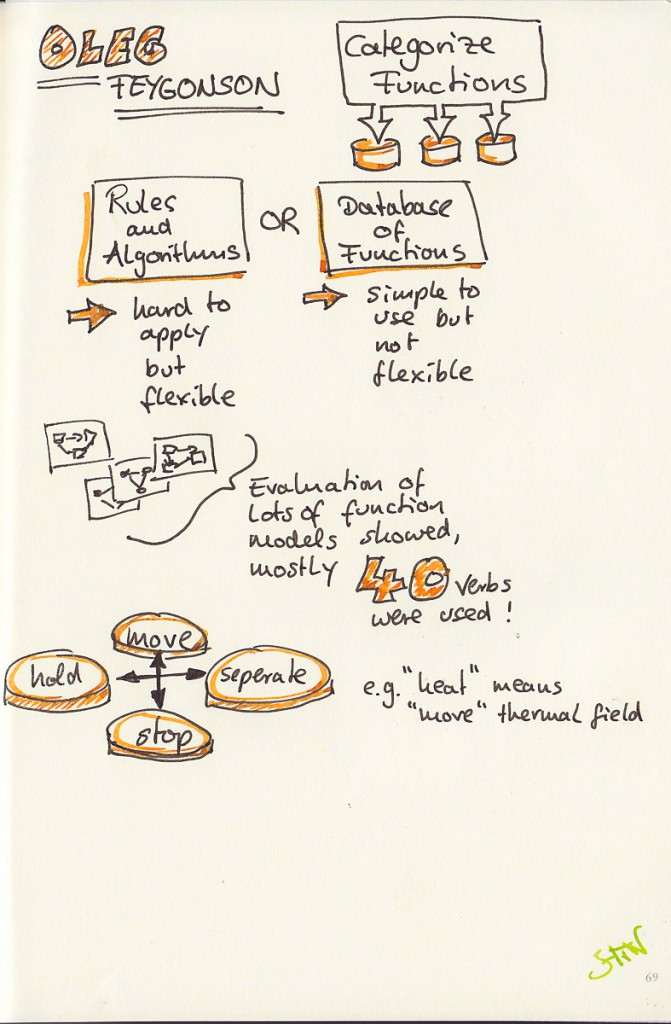 OLEG
FEYGONSON
Categorize
Functions
Rules
and
Algorithms
OR
Database
of
Functions
hard to
apply
but
flexible
simple to
use but
not
flexible
Evaluation of
lots of function
models showed,
mostly 40 verbs
were used!
move
hold
seperate
stop
e.g. "heat" means
"move" thermal field
69